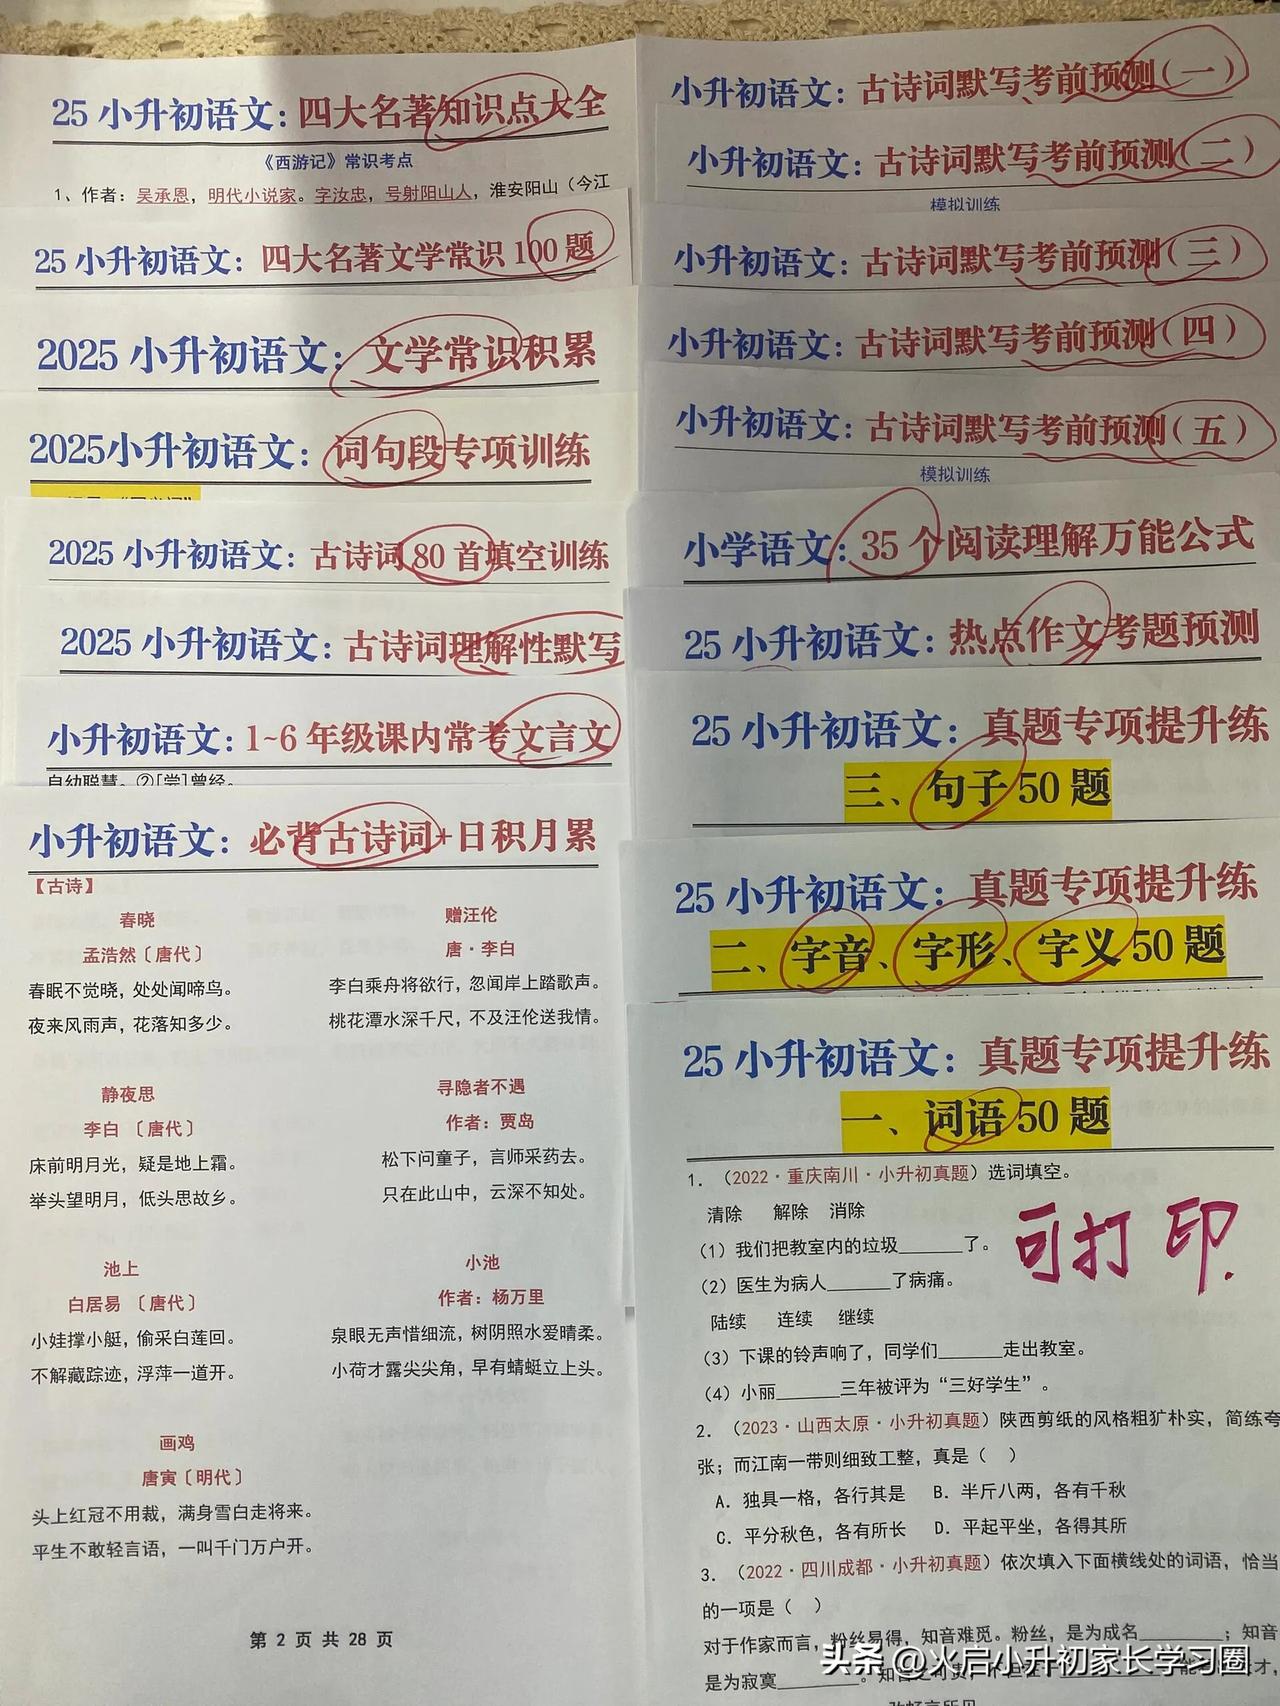 25 小升初语文：四大名著知识点大全
《西游记》常识考点
1、作者：吴承恩，明代小说家。字汝忠，号射阳山人，淮安阳山（今江
25 小升初语文：四大名著文学常识 100 题
2025 小升初语文：文学常识积累
2025小升初语文：词句段专项训练
2025 小升初语文：古诗词 80 首填空训练
2025 小升初语文：古诗词理解性默写
小升初语文：1~6 年级课内常考文言文
自幼聪慧。②[尝]曾经。
小升初语文：必背古诗词+日积月累
【古诗】
春晓
孟浩然〔唐代〕
春眠不觉晓，处处闻啼鸟。
夜来风雨声，花落知多少。
赠汪伦
唐·李白
李白乘舟将欲行，忽闻岸上踏歌声。
桃花潭水深千尺，不及汪伦送我情。
静夜思
李白 〔唐代〕
床前明月光，疑是地上霜。
举头望明月，低头思故乡。
寻隐者不遇
作者：贾岛
松下问童子，言师采药去。
只在此山中，云深不知处。
池上
白居易 〔唐代〕
小娃撑小艇，偷采白莲回。
不解藏踪迹，浮萍一道开。
小池
作者：杨万里
泉眼无声惜细流，树阴照水爱晴柔。
小荷才露尖尖角，早有蜻蜓立上头。
画鸡
唐寅〔明代〕
头上红冠不用裁，满身雪白走将来。
平生不敢轻言语，一叫千门万户开。
第 2 页 共 28 页
小升初语文：古诗词默写考前预测（一）
小升初语文：古诗词默写考前预测（二）
模拟训练
小升初语文：古诗词默写考前预测（三）
小升初语文：古诗词默写考前预测（四）
小升初语文：古诗词默写考前预测（五）
模拟训练
小学语文：35 个阅读理解万能公式
25 小升初语文：热点作文考题预测
25 小升初语文：真题专项提升练
三、句子 50 题
25 小升初语文：真题专项提升练
二、字音、字形、字义 50 题
25 小升初语文：真题专项提升练
一、词语 50 题
1. （2022·重庆南川·小升初真题）选词填空。
清除 解除 消除
（1）我们把教室内的垃圾______了。
（2）医生为病人______了病痛。
可打印.
陆续 连续 继续
（3）下课的铃声响了，同学们______走出教室。
（4）小丽______三年被评为“三好学生”。
2. （2023·山西太原·小升初真题）陕西剪纸的风格粗犷朴实，简练夸
张；而江南一带则细致工整，真是（ ）
A. 独具一格，各行其是 B. 半斤八两，各有千秋
C. 平分秋色，各有所长 D. 平起平坐，各得其所
3. （2022·四川成都·小升初真题）依次填入下面横线处的词语，恰当
的一项是（ ）
对于作家而言，粉丝易得，知音难觅。粉丝，是为成名________；知音
是为寂寞________。
头条 @火启小升初家长学习圈